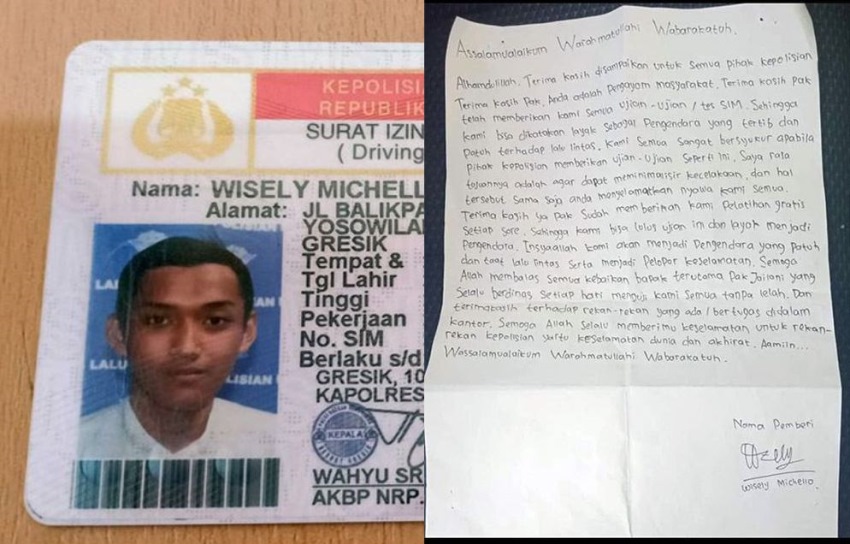 KEPOLISI
REPUBLIK
SURAT IZIN
( Driving
Nama: WISELY MICHELL
Alamat: JL BALIKPA
YOSOWILAN
GRESIK
Tempat &
Tgl Lahir
Tinggi
Pekerjaan
No. SIM
Berlaku s/d
GRESIK, 10
KAPOLRES
KEPALA
WAHYU SR
AKBP NRP.
LALU
LISIAN
Assalamualaikum Warahmatullahi Wabarakatuh.
Alhamdulillah. Terima kasih disampaikan untuk semua pihak kepolisian
Terima kasih Pak, Anda adalah Pengayom masyarakat. Terima kasih pak
telah memberikan kami semua ujian-ujian / tes SIM. Sehingga
kami bisa dikatakan layak sebagai Pengendara yang tertib dan
Patuh terhadap lalu lintas. Kami Semua Sangat bersyukur apabila
Pihak kepolisian memberikan ujian-ujian Seperti ini, Saya rasa
tujuannya adalah agar dapat meminimalisir kecelakaan, dan hal
tersebut Sama saja anda menyelamatkan nyawa kami semua.
Terima kasih ya pak Sudah memberikan kami Pelatihan gratis
Setiap Sore. Sehingga kami bisa lolos ujian ini dan layak menjadi
Pengendara. Insyaallah kami akan menjadi Pengendara yang Patuh
dan taat lalu lintas serta menjadi Pelopor keselamatan. Semoga
Allah membalas Semua kebaikan bapak terutama Pak Jailani yang
Selalu berdinas Setiap hari menguji kami Semua tanpa lelah. Dan
terimakasih terhadap rekan-rekan yang ada / bertugas didalam
kantor. Semoga Allah Selalu memberimu keselamatan untuk rekan-
rekan kepolisian yaitu keselamatan dunia dan akhirat. Aamiin...
Wassalamualaikum Warahmatullahi Wabarakatuh.
Nama Pemberi
Wisely Michello.